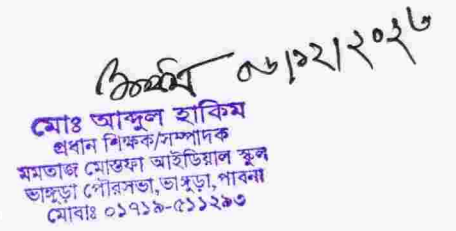 ০৬/১২/২০২৬
মোঃ আব্দুল হাকিম
প্রধান শিক্ষক/সম্পাদক
মমতাজ মোস্তফা আইডিয়াল স্কুল
ভাঙ্গুড়া পৌরসভা, ভাঙ্গুড়া, পাবনা
মোবাঃ ০১৭১৯-৫১১২৯৩